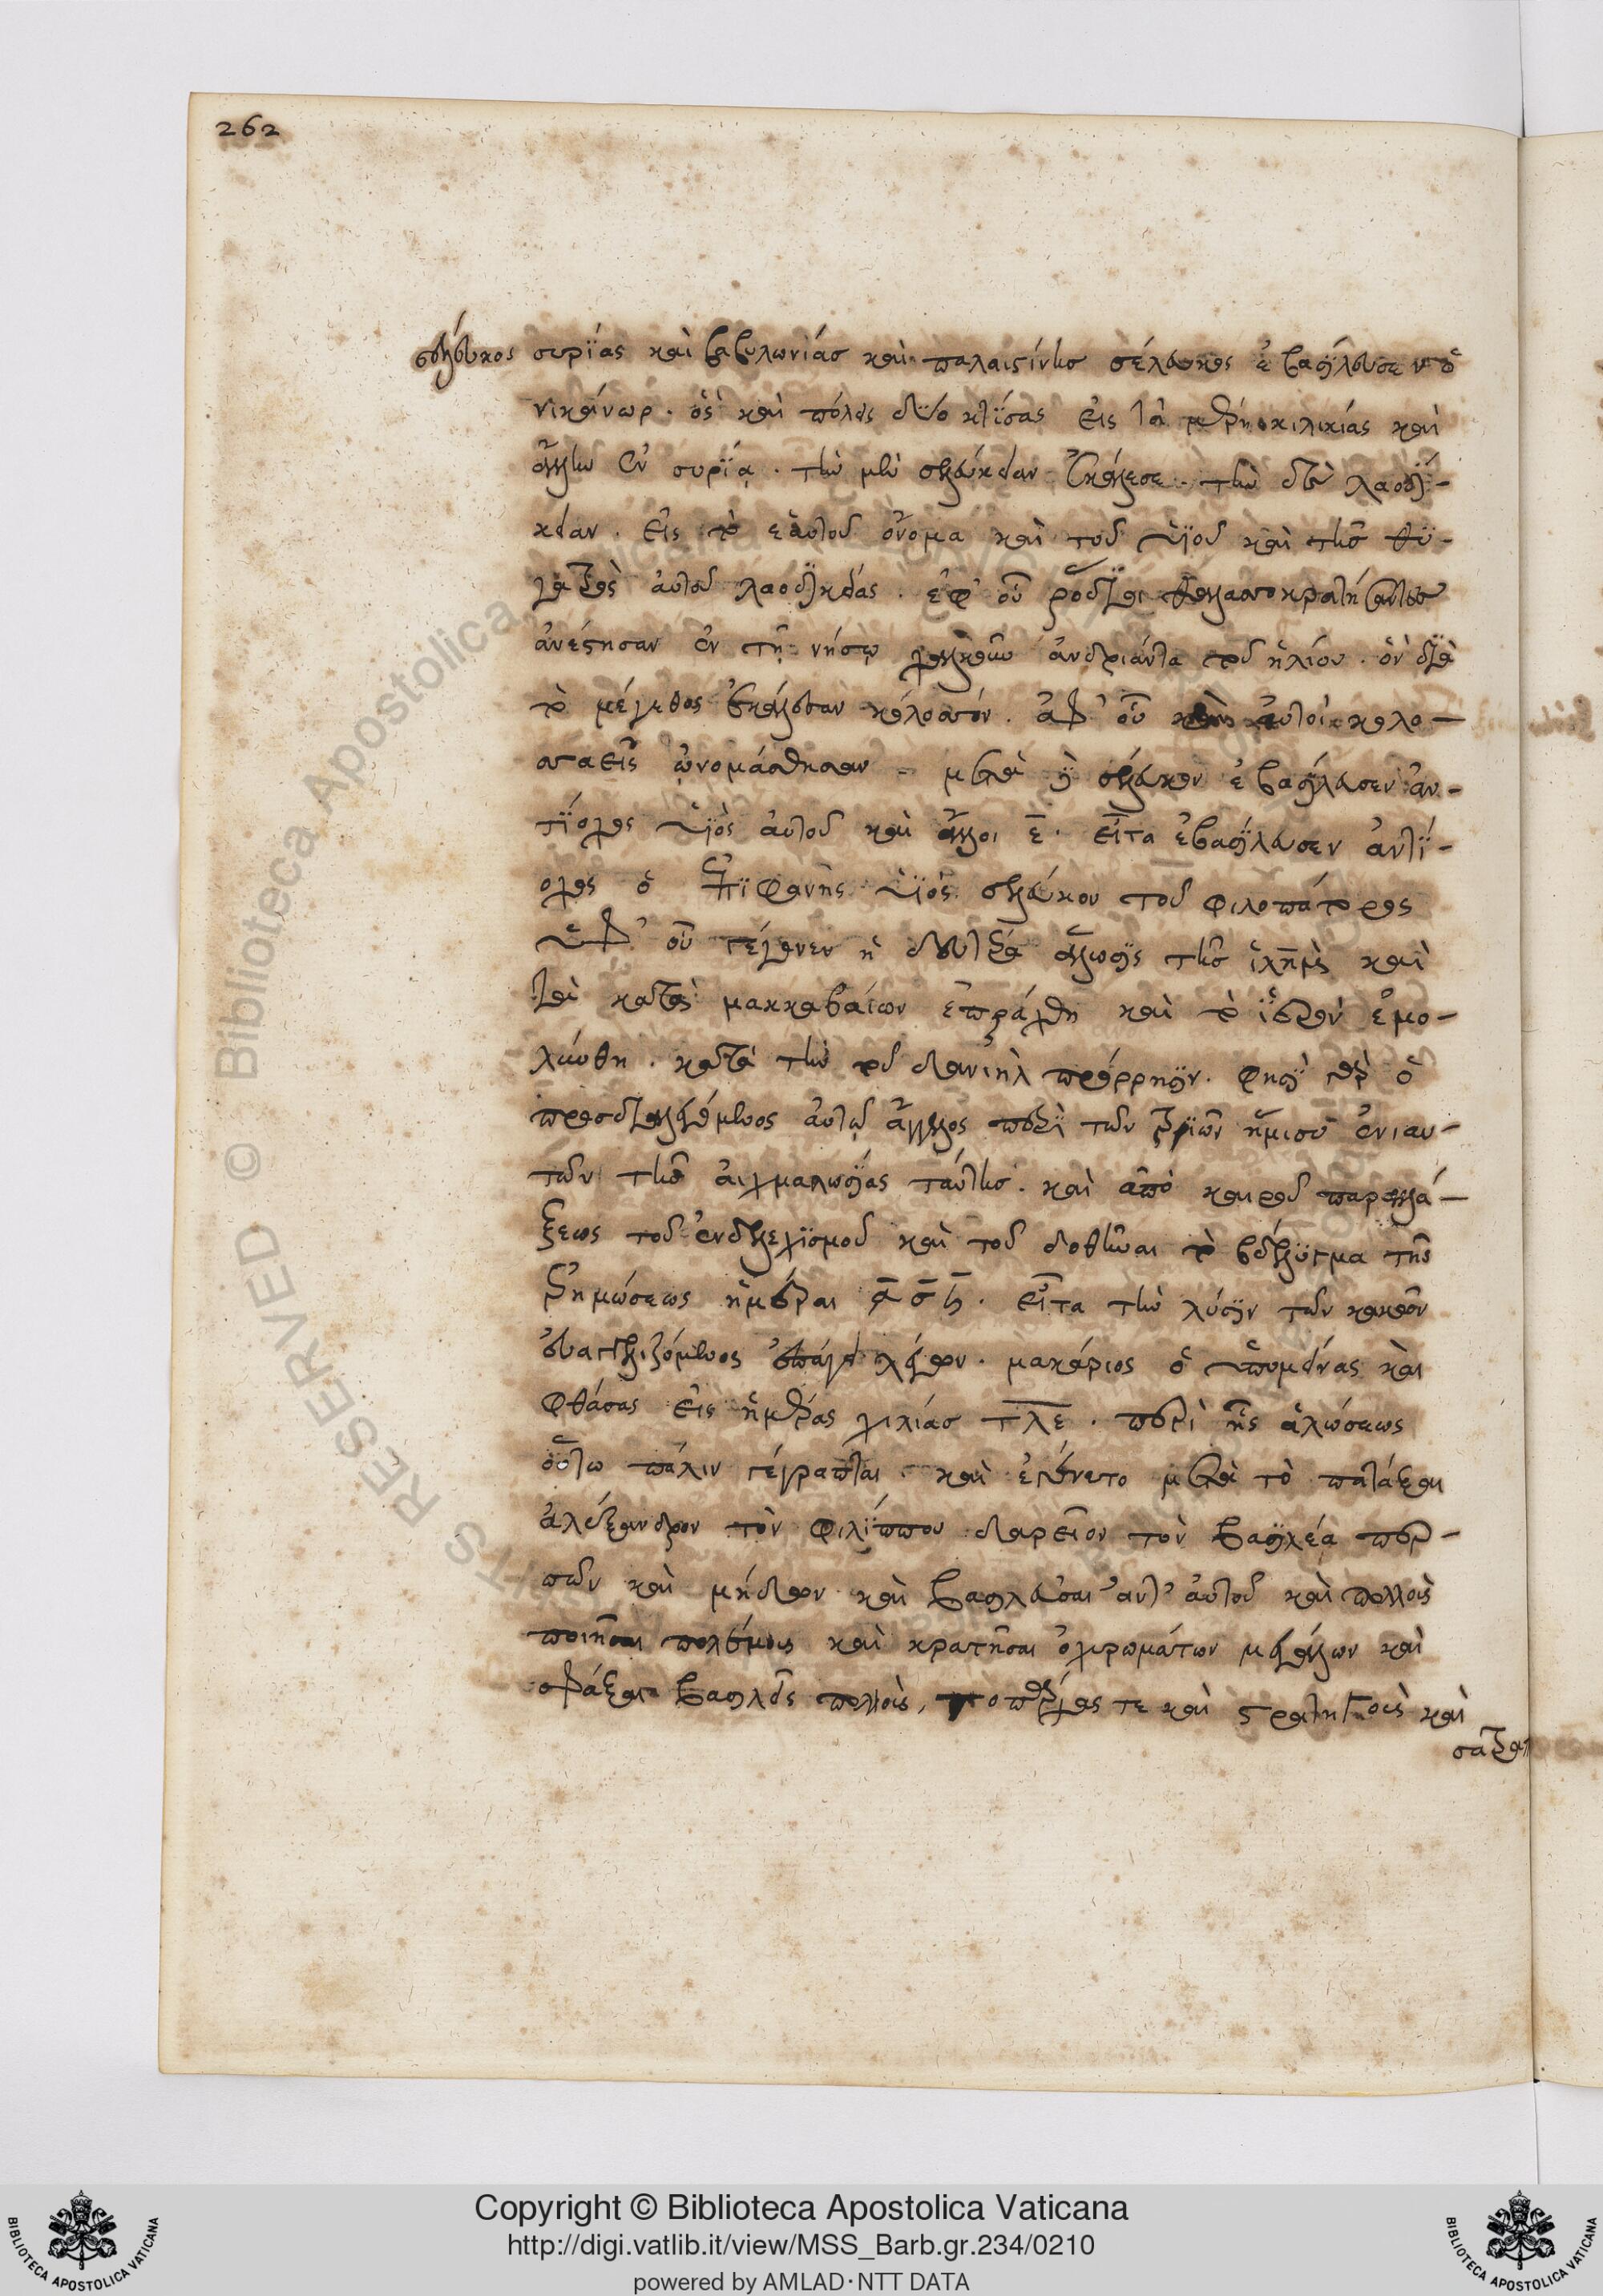 262
σέλευκος
συρίας καὶ βαβυλωνίας καὶ παλαιστίνης σέλευκος ἐβασίλευσεν ὁ
νικάνωρ. ὃς καὶ πόλεις δύο κτίσας εἰς τὰ μέρη κιλικίας καὶ
ἄλλην ἐν συρίᾳ. τὴν μὲν σελεύκειαν ἐκάλεσε. τὴν δὲ λαοδί-
κειαν. εἰς τὸ ἑαυτοῦ ὄνομα καὶ τοῦ υἱοῦ καὶ τῆς θυ-
γατρὸς αὐτοῦ λαοδικείας. ἐφ' οὗ ῥόδιοι θαλασσοκρατήσαντες
ἀνέστησαν ἐν τῇ νήσῳ χαλκοῦν ἀνδριάντα τοῦ ἡλίου. ὃν διὰ
τὸ μέγεθος ἐκάλεσαν κολοσσόν. ἀφ' οὗ καὶ αὐτοὶ κολο-
σσαεῖς ὠνομάσθησαν. μετὰ δὲ σέλευκον ἐβασίλευσεν ἀν-
τίοχος υἱὸς αὐτοῦ καὶ ἄλλοι ε. εἶτα ἐβασίλευσεν ἀντί-
οχος ὁ ἐπιφανὴς υἱὸς σελεύκου τοῦ φιλοπάτορος
ὑφ' οὗ γέγονεν ἡ δευτέρα ἅλωσις τῆς ἱλημ καὶ
τὰ κατὰ μακκαβαίων ἐπράχθη καὶ τὸ ἱερὸν ἐμο-
λύνθη. κατὰ τὴν τοῦ δανιὴλ πρόρρησιν. φησὶ γὰρ ὁ
προσδιαλεγόμενος αὐτῷ ἄγγελος περὶ τῶν τριῶν ἥμισυ ἐνιαυ-
τῶν τῆς αἰχμαλωσίας ταύτης. καὶ ἀπὸ καιροῦ παραλλά-
ξεως τοῦ ἐνδελεχισμοῦ καὶ τοῦ δοθῆναι τὸ βδέλυγμα τῆς
ἐρημώσεως ἡμέραι ͵ασϟ. εἶτα τὴν λύσιν τῶν κακῶν
εὐαγγελιζόμενος ἐπάγει λέγων. μακάριος ὁ ὑπομείνας καὶ
φθάσας εἰς ἡμέρας χιλίας τλε. περὶ ἧς ἁλώσεως
οὕτω πάλιν γέγραπται καὶ ἐγένετο μετὰ τὸ πατάξαι
ἀλέξανδρον τὸν φιλίππου δαρεῖον τὸν βασιλέα περ-
σῶν καὶ μήδων καὶ βασιλεῦσαι ἀντ' αὐτοῦ καὶ πολλοὺς
ποιῆσαι πολέμους καὶ κρατῆσαι ὀχυρωμάτων μεγάλων καὶ
σφάξαι βασιλεῖς πολλοὺς, τοπάρχας τε καὶ στρατηγοὺς καὶ
σατρα
Copyright © Biblioteca Apostolica Vaticana
http://digi.vatlib.it/view/MSS_Barb.gr.234/0210
powered by AMLAD·NTT DATA